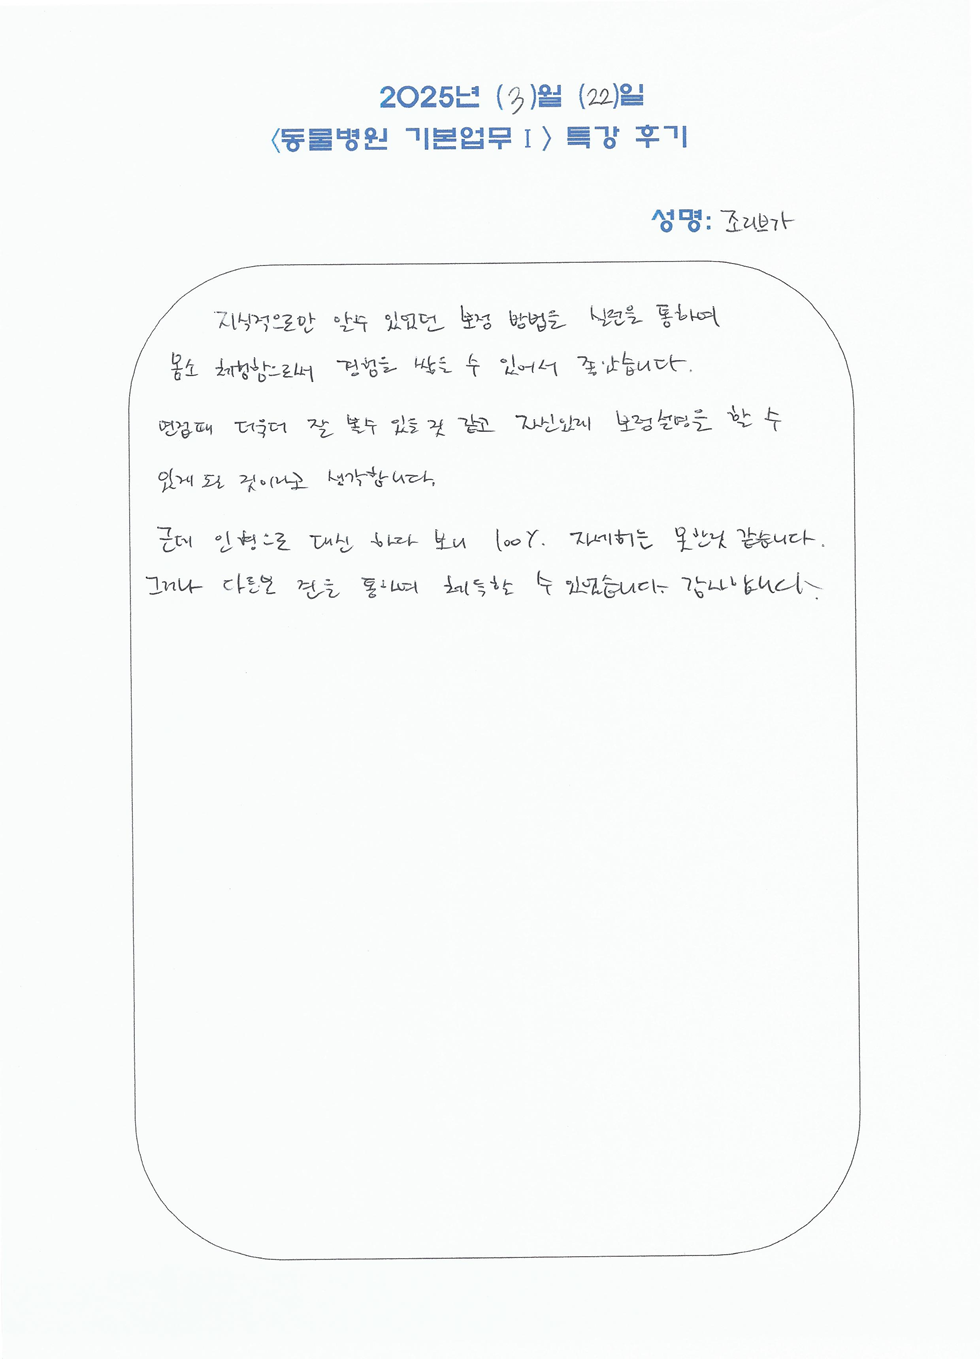 2025년 (3)월 (22)일
<동물병원 기본업무 I> 특강 후기
성명: 조리브가
지식적으로만 알수 있었던 보정 방법을 실련을 통하여
몸소 체험함으로써 경험을 쌓을 수 있어서 좋았습니다.
면접때 더욱더 잘 볼수 있을 것 같고 자신있게 보정설명을 할 수
있게 될 것이라고 생각합니다.
근데 인형으로 대신 하다 보니 100% 자세히는 못한것 같습니다.
그러나 다른 견을 통하여 체득할 수 있었습니다. 감사합니다.